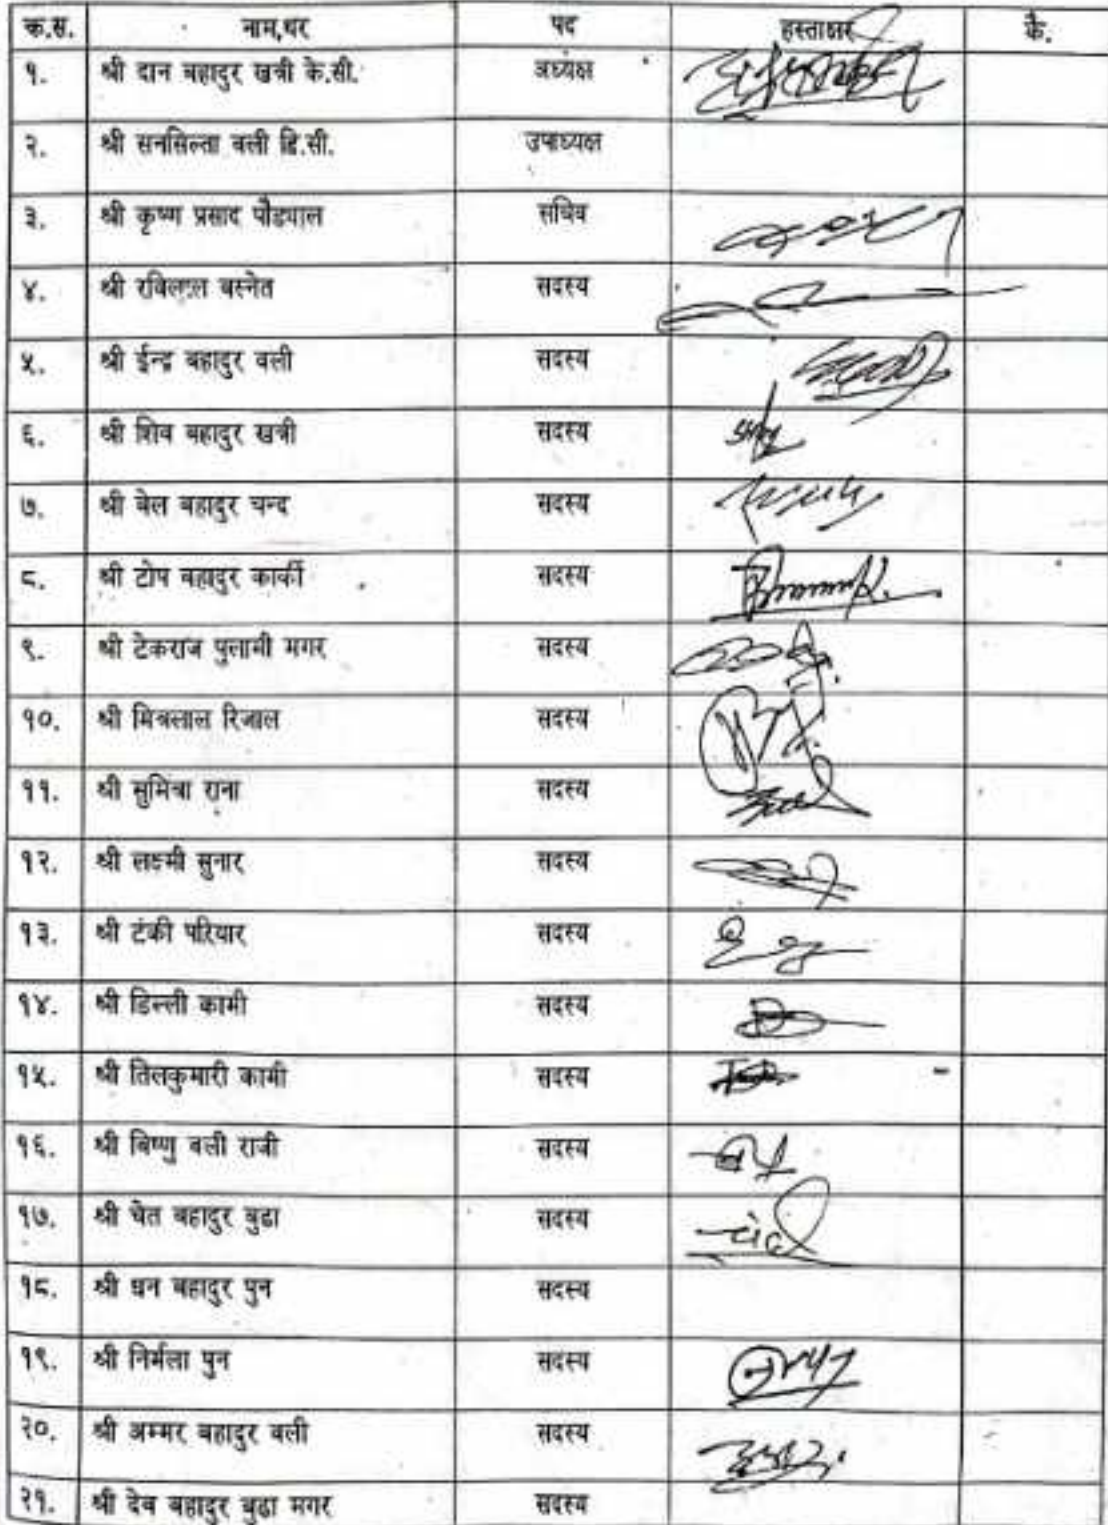 क.स. नाम,थर पद हस्ताक्षर कै.
१. श्री दान बहादुर खत्री के.सी. अध्यक्ष
२. श्री सनसिल्ता वली डि.सी. उपाध्यक्ष
३. श्री कृष्ण प्रसाद पौड्याल सचिव
४. श्री रविलाल बस्नेत सदस्य
५. श्री ईन्द्र बहादुर वली सदस्य
६. श्री शिव बहादुर खत्री सदस्य
७. श्री बेल बहादुर चन्द सदस्य
८. श्री टोप बहादुर कार्की सदस्य
९. श्री टेकराज पुलामी मगर सदस्य
१०. श्री मित्रलाल रिजाल सदस्य
११. श्री सुमित्रा राना सदस्य
१२. श्री लक्ष्मी सुनार सदस्य
१३. श्री टंकी परियार सदस्य
१४. श्री डिल्ली कामी सदस्य
१५. श्री तिलकुमारी कामी सदस्य
१६. श्री बिष्णु वली राजी सदस्य
१७. श्री चेत बहादुर बुढा सदस्य
१८. श्री धन बहादुर पुन सदस्य
१९. श्री निर्मला पुन सदस्य
२०. श्री अम्मर बहादुर वली सदस्य
२१. श्री देव बहादुर बुढा मगर सदस्य